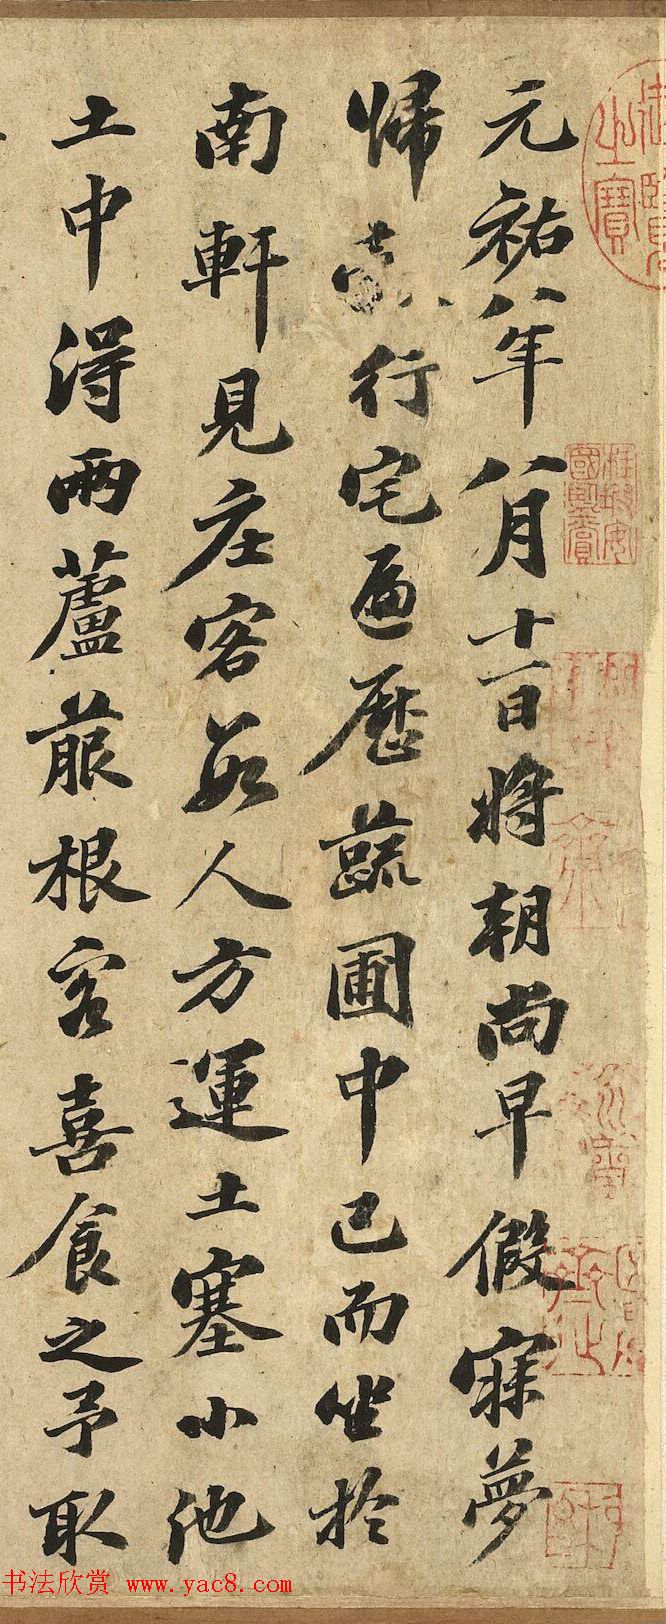 元祐八年八月十一日將朝尚早假寐夢
歸行宅遍歷蔬圃中已而坐於
南軒見庄客數人方運土塞小池
土中得兩蘆菔根客喜食之予取
之寶
書法欣赏 www.yac8.com